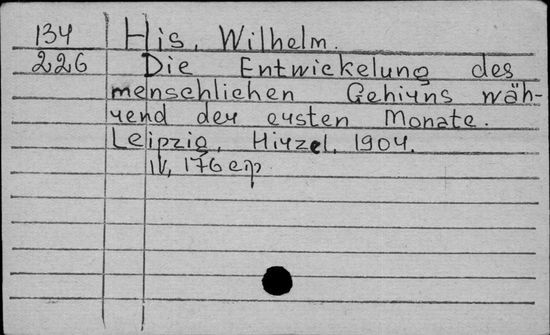 134 His, Wilhelm.
226 Die Entwickelung des
menschlichen Gehirns wäh-
rend der ersten Monate.
Leipzig, Hirzel, 1904.
IV, 176 стр.